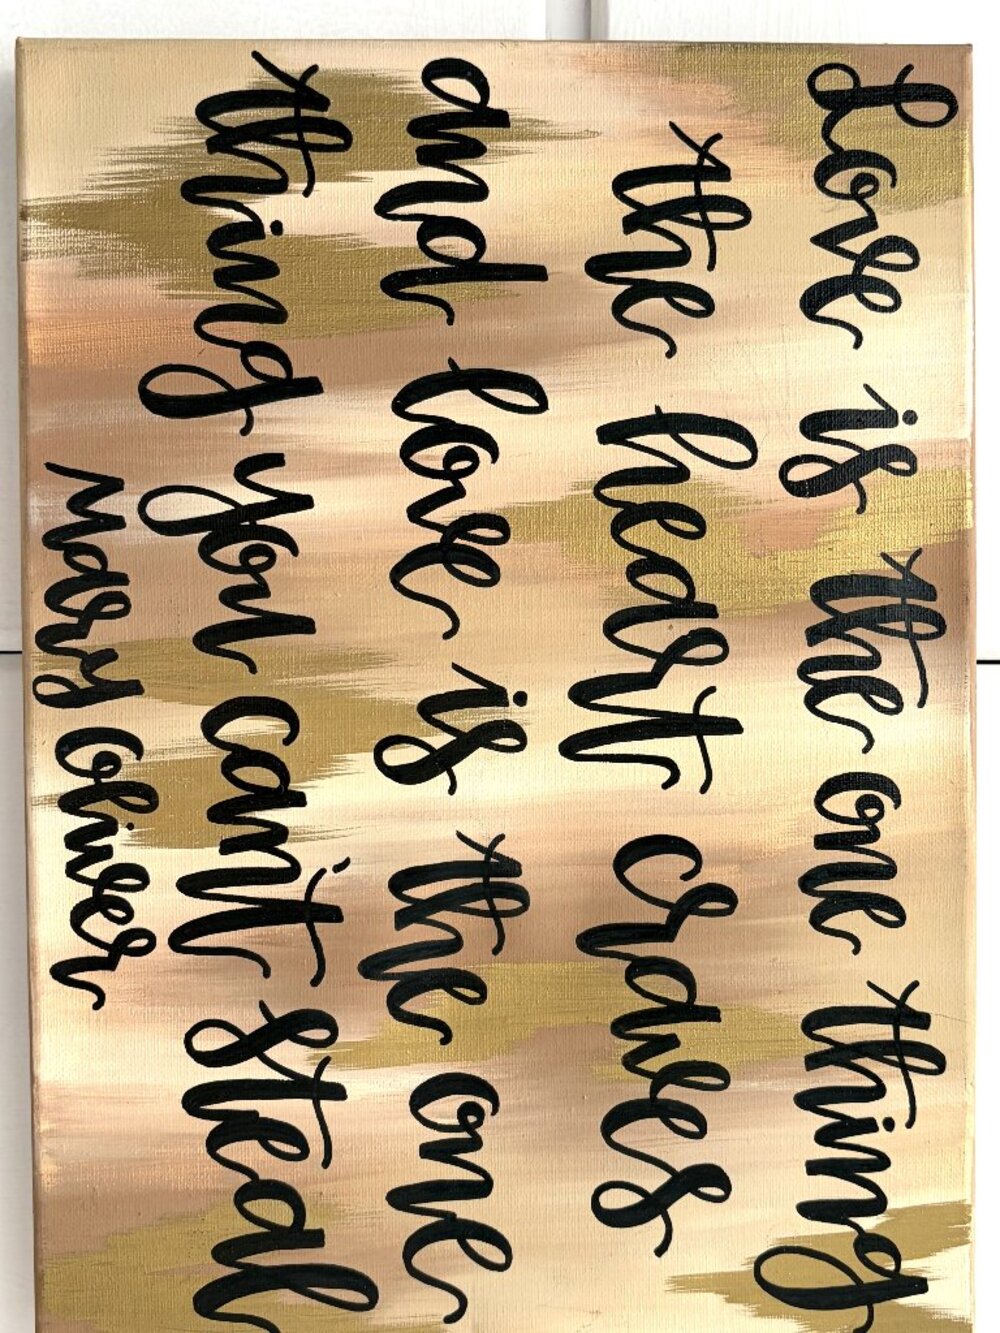 Love is the one thing
the heart craves
and love is the one
thing you can't steal
Mary Oliver